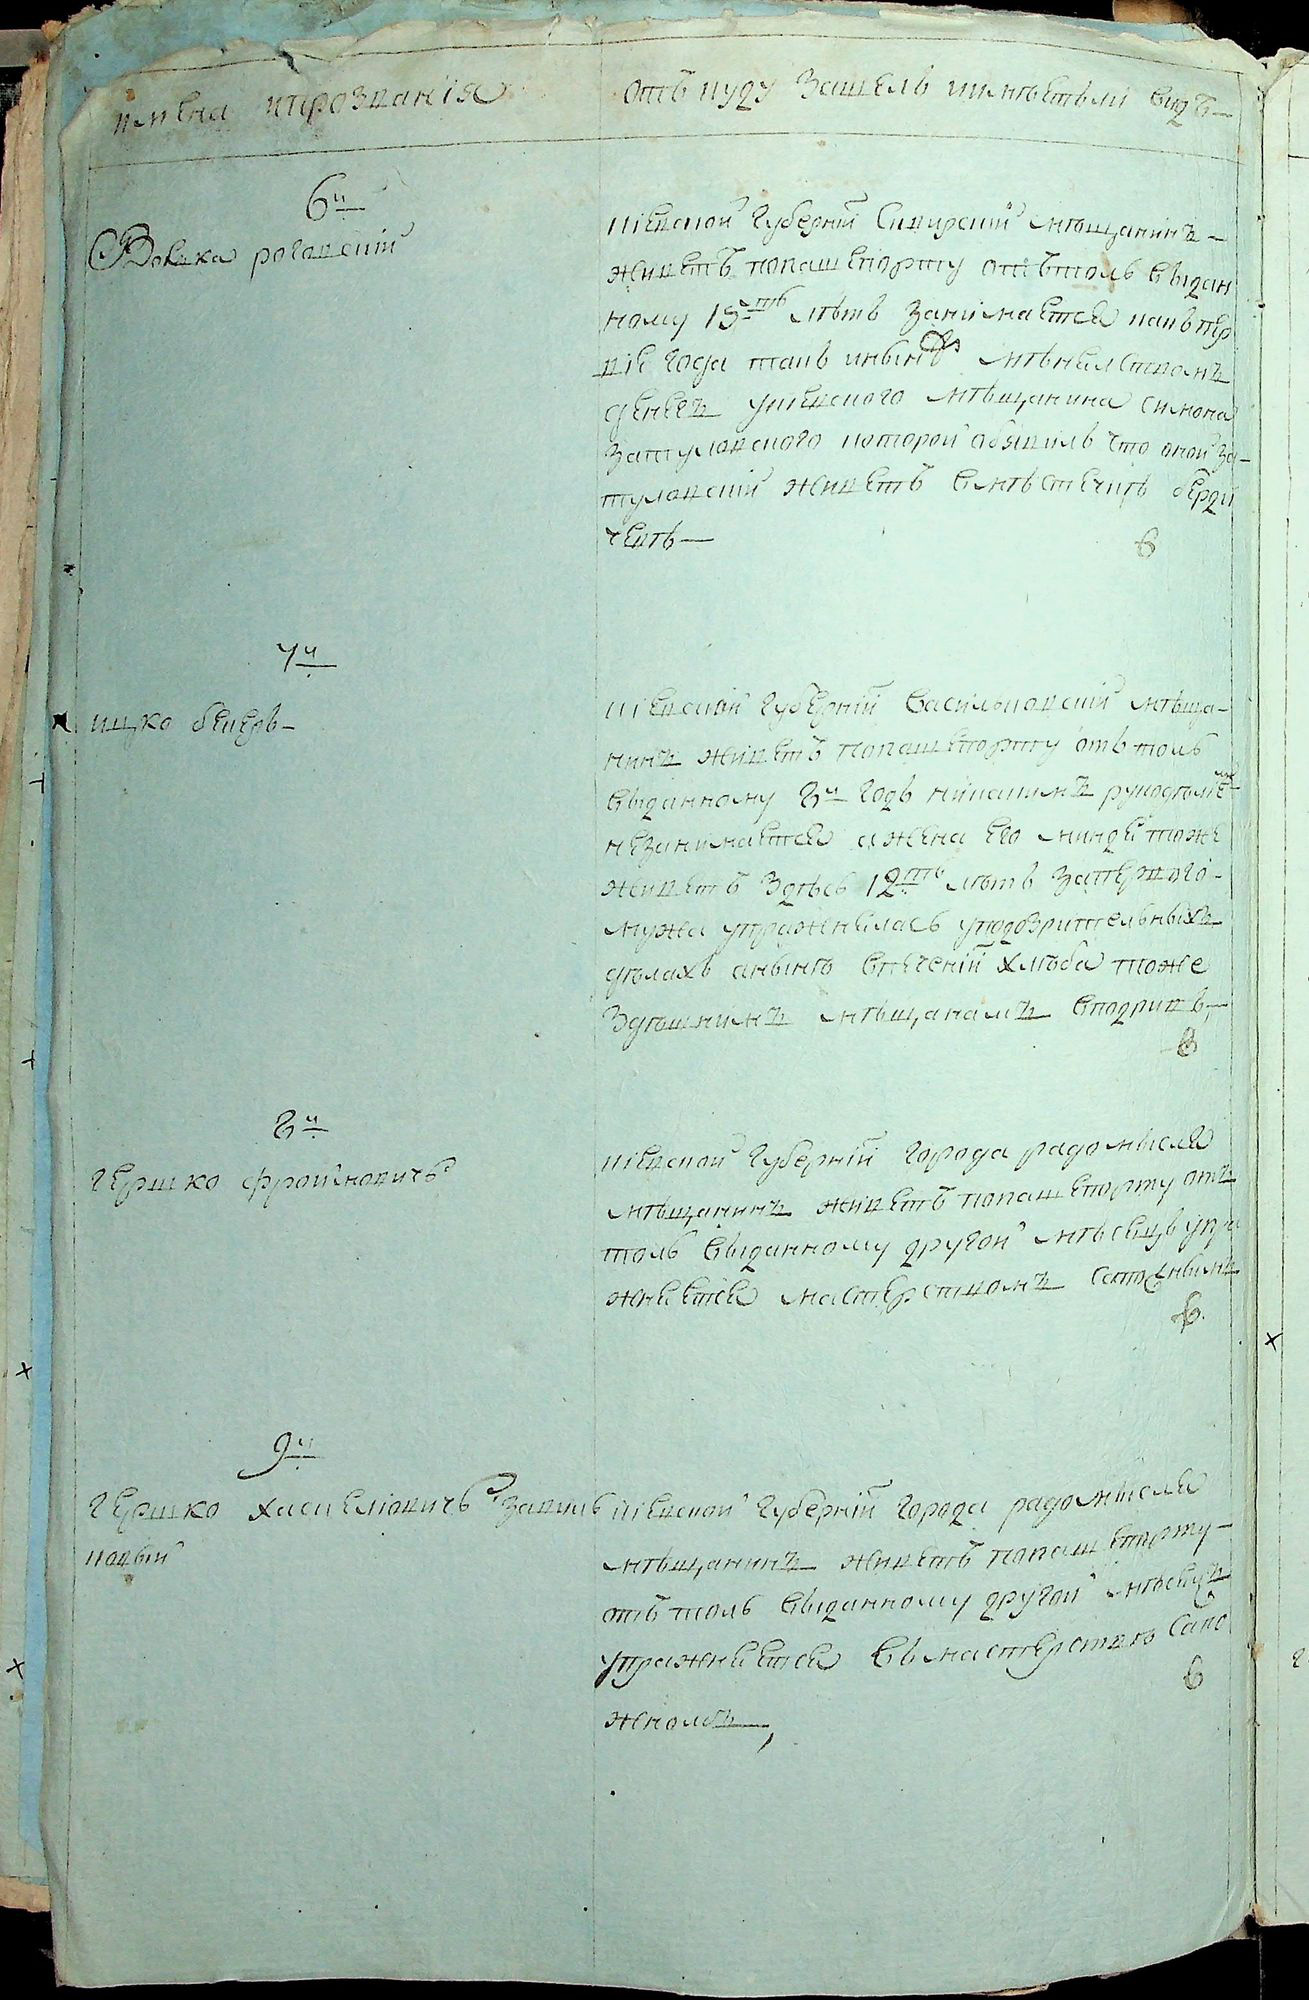 имена ипрозванія
отъ куду зашелъ иимѣетъли видъ—
6й
Вовка рогавскій
кіевской губерніи Сквирскій мѣщанинъ—
живетъ попашепорту отътоль выдан
ному 15ть лѣтъ занимается какъ пер
віе года такъ инынѣ мѣняльствомъ
денегъ укіевского мѣщанина симона
затуловского которой объявилъ что оной за—
туловскій живетъ вмѣстечкѣ берди
чевѣ—
7й
ицко бекеръ—
кіевской губерніи васильковскій мѣща—
нинъ живетъ попашепорту отъ толь
выданному 8й годъ никакимъ рукодѣліемъ
незанимается а жена его минди тоже
живетъ здѣсь 12ть лѣтъ запервого—
мужа упражнялась уподозрительныхъ
дѣлахъ анынѣ впеченіи хлѣба тоже
здѣшнимъ мѣщанамъ вподривъ,—
8й
гершко фроимовичъ
кіевской губерніи города радомысля
мѣщанинъ живетъ попашепорту отъ
толь выданному другой мѣсецъ упра
жняется мастерствомъ сапожнымъ
9й
гершко хаскелювичъ завил
ковый
кіевской губерніи города радомысля
мѣщанинъ живетъ попашепорту—
отъ толь выданному другой мѣсецъ
упражняется въмастерствѣ сапо
жномъ—,